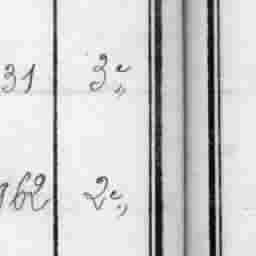 31 3e,,
962 2e,,